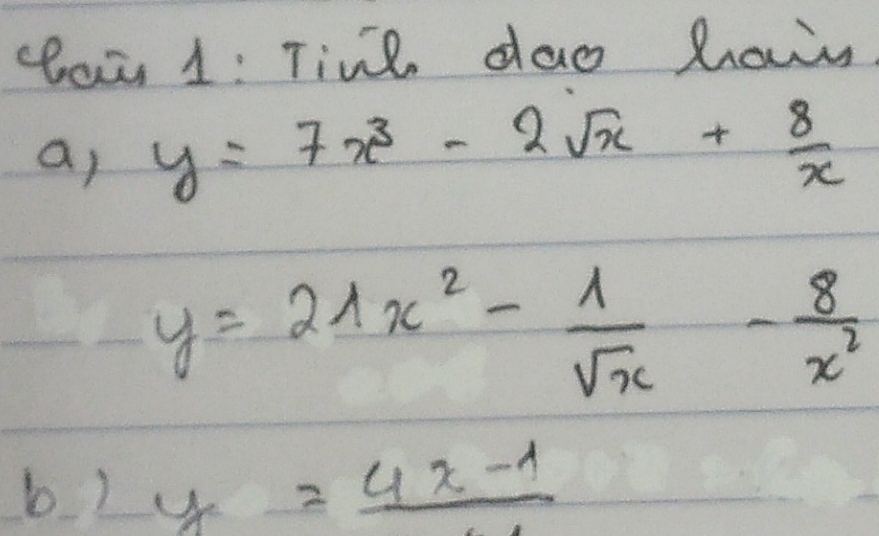 Câu 1: Tính đạo hàm
a, y = 7x³ - 2√x + 8/x
y = 21x² - 1/√x - 8/x²
b) y = 4x-1